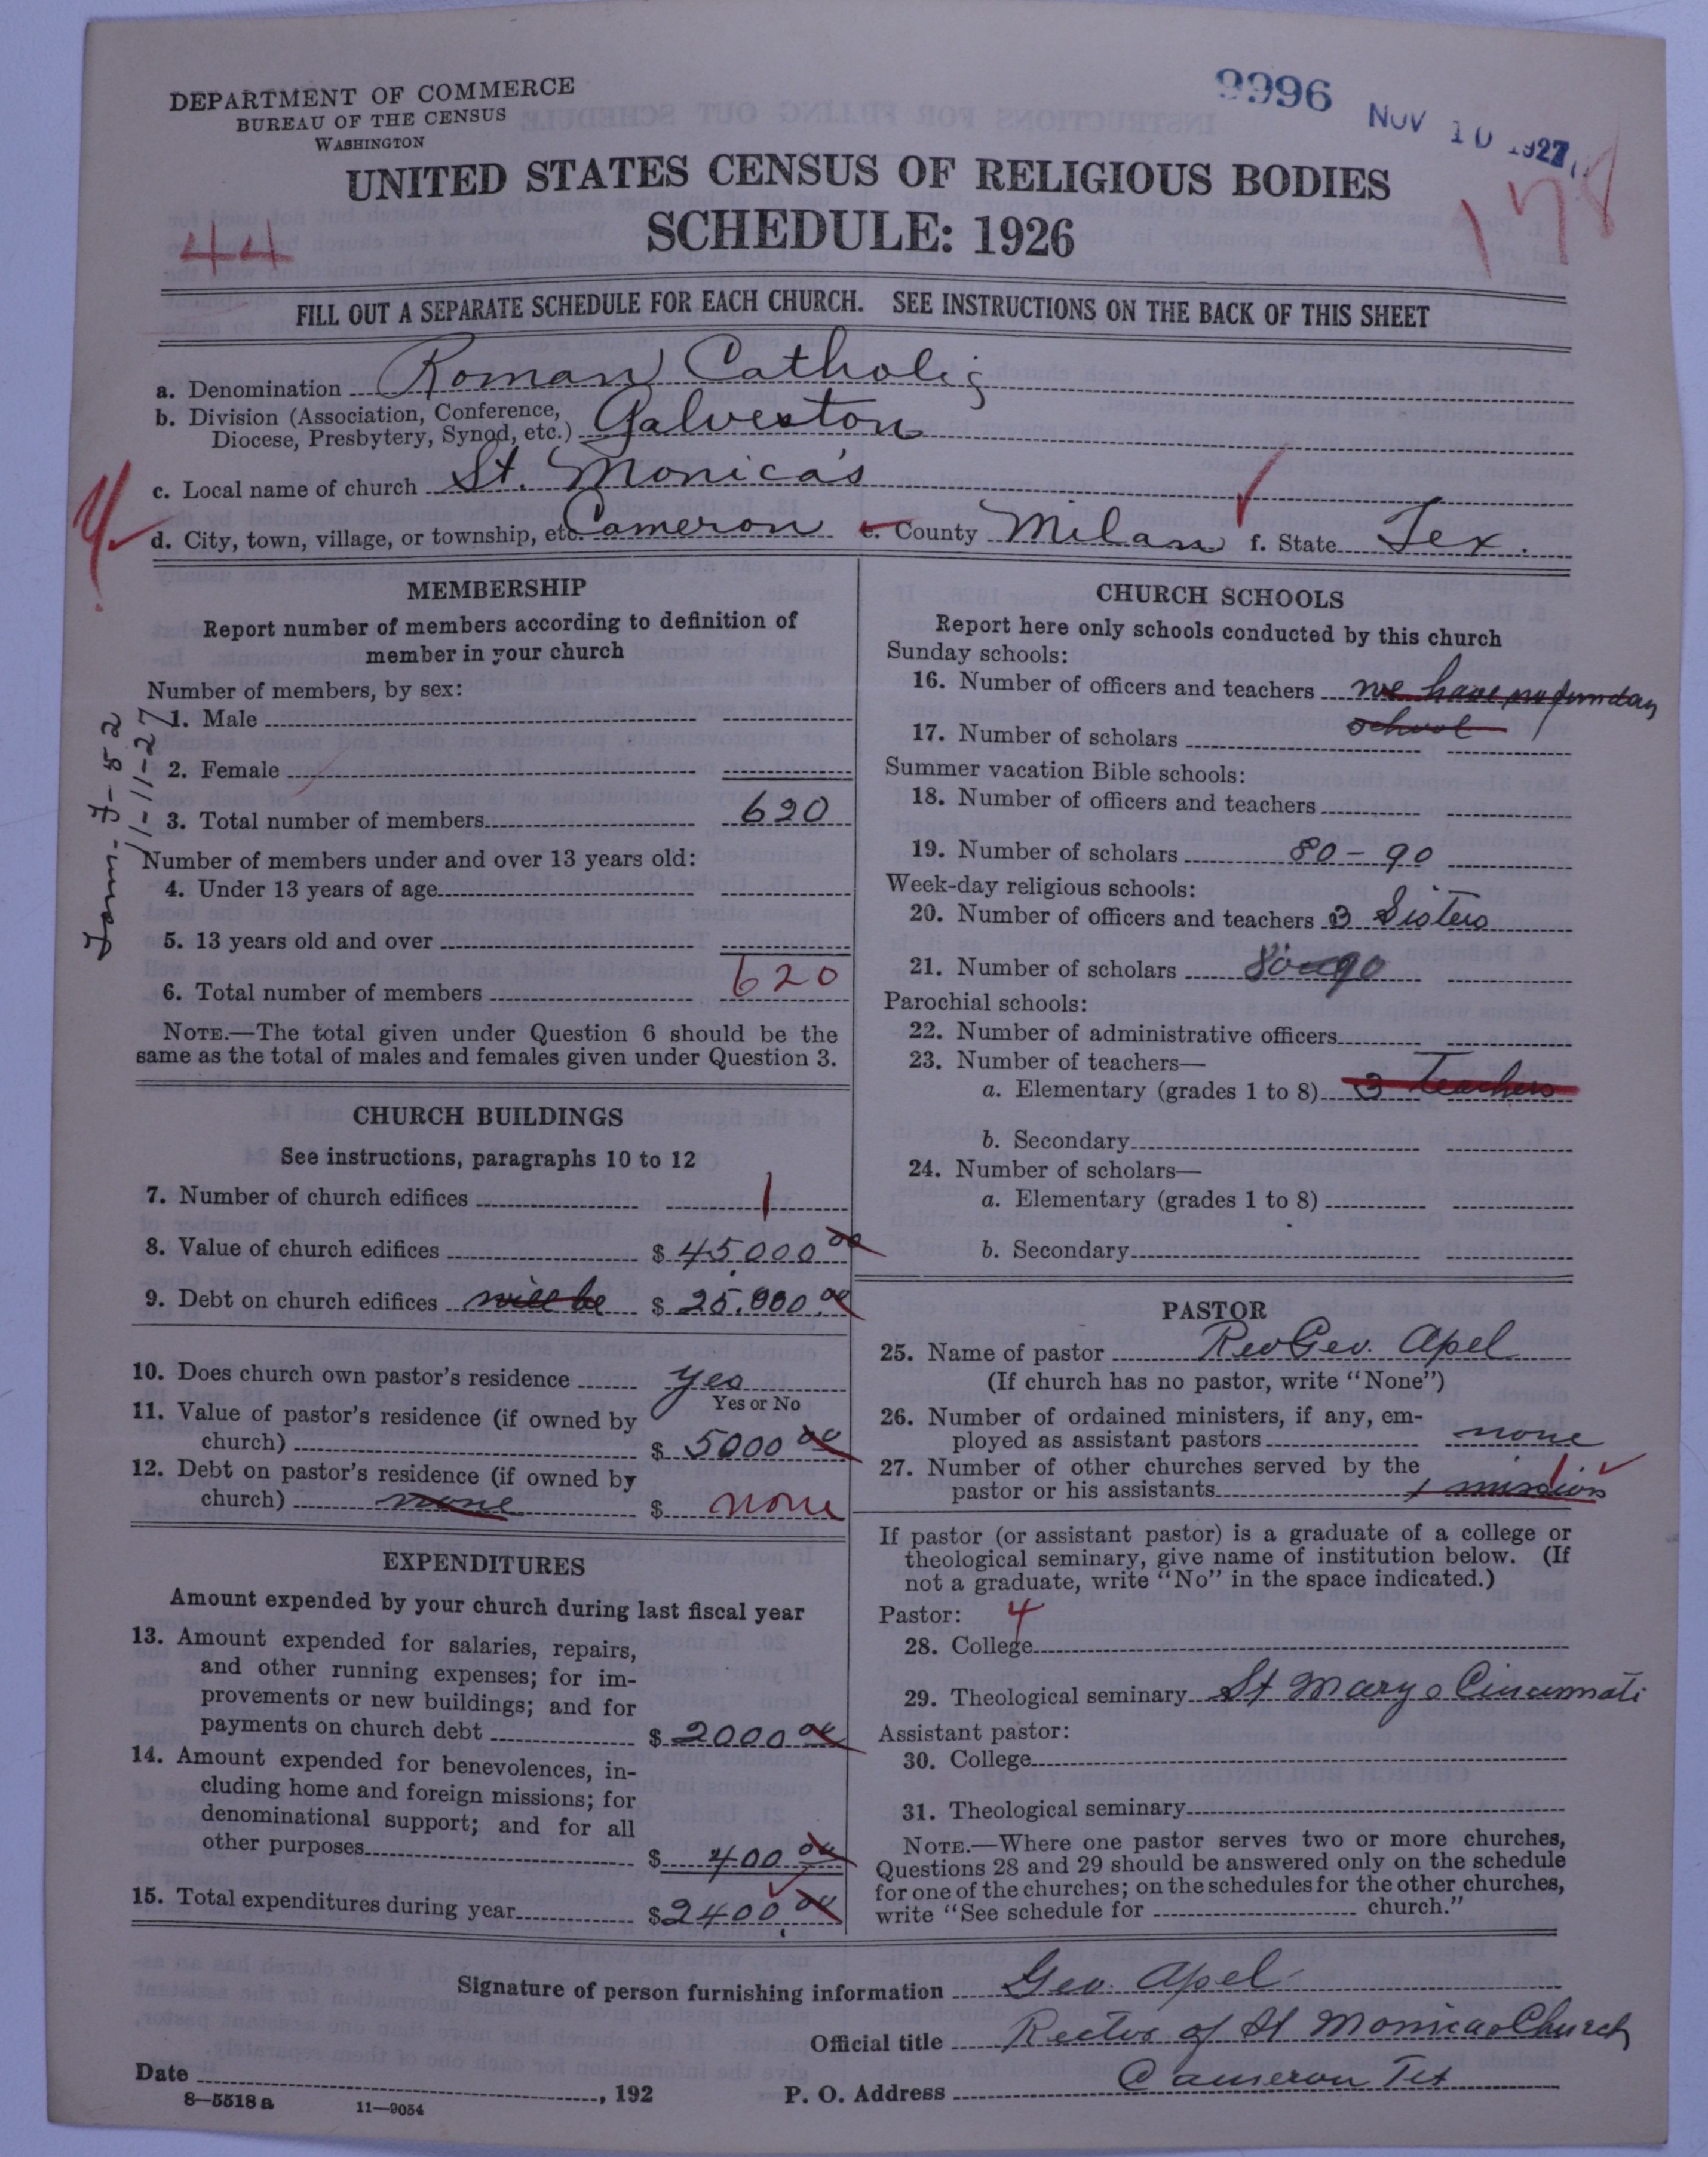 DEPARTMENT OF COMMERCE
BUREAU OF THE CENSUS
WASHINGTON
9996
NOV 10 1927
178
UNITED STATES CENSUS OF RELIGIOUS BODIES
SCHEDULE: 1926
44
FILL OUT A SEPARATE SCHEDULE FOR EACH CHURCH. SEE INSTRUCTIONS ON THE BACK OF THIS SHEET
a. Denomination Roman Catholic
b. Division (Association, Conference, Diocese, Presbytery, Synod, etc.) Galveston
c. Local name of church St. Monica's
d. City, town, village, or township, etc. Cameron e. County Milan f. State Tex.
MEMBERSHIP
Report number of members according to definition of
member in your church
Number of members, by sex:
1. Male
2. Female
3. Total number of members 620
Number of members under and over 13 years old:
4. Under 13 years of age
5. 13 years old and over
6. Total number of members 620
NOTE.—The total given under Question 6 should be the
same as the total of males and females given under Question 3.
11-11-27
CHURCH BUILDINGS
See instructions, paragraphs 10 to 12
7. Number of church edifices 1
8. Value of church edifices $ 45,000 00
9. Debt on church edifices will be $ 25,000.00
10. Does church own pastor's residence yes
Yes or No
11. Value of pastor's residence (if owned by
church) $ 5000 00
12. Debt on pastor's residence (if owned by
church) none $ none
EXPENDITURES
Amount expended by your church during last fiscal year
13. Amount expended for salaries, repairs,
and other running expenses; for im-
provements or new buildings; and for
payments on church debt $ 2000 00
14. Amount expended for benevolences, in-
cluding home and foreign missions; for
denominational support; and for all
other purposes $ 400 00
15. Total expenditures during year $ 2400.00
CHURCH SCHOOLS
Report here only schools conducted by this church
Sunday schools:
16. Number of officers and teachers we have no sunday
school
17. Number of scholars
Summer vacation Bible schools:
18. Number of officers and teachers
19. Number of scholars 80-90
Week-day religious schools:
20. Number of officers and teachers 3 Sisters
21. Number of scholars 80-90
Parochial schools:
22. Number of administrative officers
23. Number of teachers—
a. Elementary (grades 1 to 8) 3 teachers
b. Secondary
24. Number of scholars—
a. Elementary (grades 1 to 8)
b. Secondary
PASTOR
25. Name of pastor Rev Geo. Apel
(If church has no pastor, write "None")
26. Number of ordained ministers, if any, em-
ployed as assistant pastors none
27. Number of other churches served by the
pastor or his assistants 1 mission 1
If pastor (or assistant pastor) is a graduate of a college or
theological seminary, give name of institution below. (If
not a graduate, write "No" in the space indicated.)
Pastor: 4
28. College
29. Theological seminary St Marys Cincinnati
Assistant pastor:
30. College
31. Theological seminary
NOTE.—Where one pastor serves two or more churches,
Questions 28 and 29 should be answered only on the schedule
for one of the churches; on the schedules for the other churches,
write "See schedule for church."
Signature of person furnishing information Geo. Apel
Official title Rector of St Monicas Church
Date , 192 P. O. Address Cameron Tex
8—5518 a 11—9054